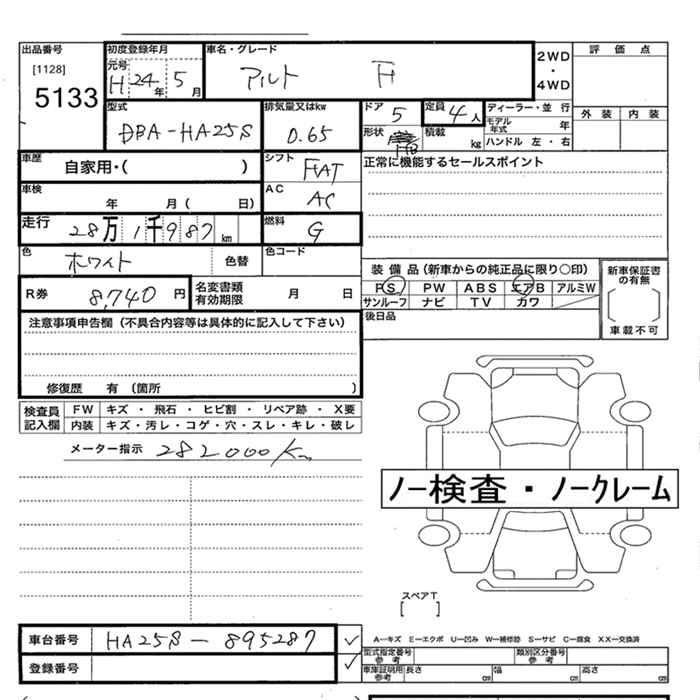 出品番号 初度登録年月 車名・グレード 2WD・4WD 評価点
[1128] 元号 H 24年 5月 アルト F
5133
型式 排気量又はkw ドア 5 定員 4人 ディーラー・並行 外装 内装
DBA-HA25S 0.65 形状 HB 積載 kg モデル年式 年
ハンドル 左・右
車歴 自家用・( ) シフト FAT 正常に機能するセールスポイント
車検 年 月( 日) AC AC
走行 28万1千987km 燃料 G
色 ホワイト 色替 色コード
装備品(新車からの純正品に限り○印) 新車保証書の有無
R券 8,740円 名変書類有効期限 月 日 PS PW ABS エアB アルミW
サンルーフ ナビ TV カワ 車載不可
注意事項申告欄(不具合内容等は具体的に記入して下さい) 後日品
修復歴 有(箇所 )
検査員記入欄 FW キズ・飛石・ヒビ割・リペア跡・X要
内装 キズ・汚レ・コゲ・穴・スレ・キレ・破レ
メーター指示 282000Km
ノー検査・ノークレーム
スペアT
[ ]
車台番号 HA25S-895287 ✓ A―キズ E―エクボ U―凹み W―補修跡 S―サビ C―腐食 XX―交換済
型式指定番号 参考 類別区分番号 参考
登録番号 ✓ 車庫証明用 参考 長さ cm 幅 cm 高さ cm